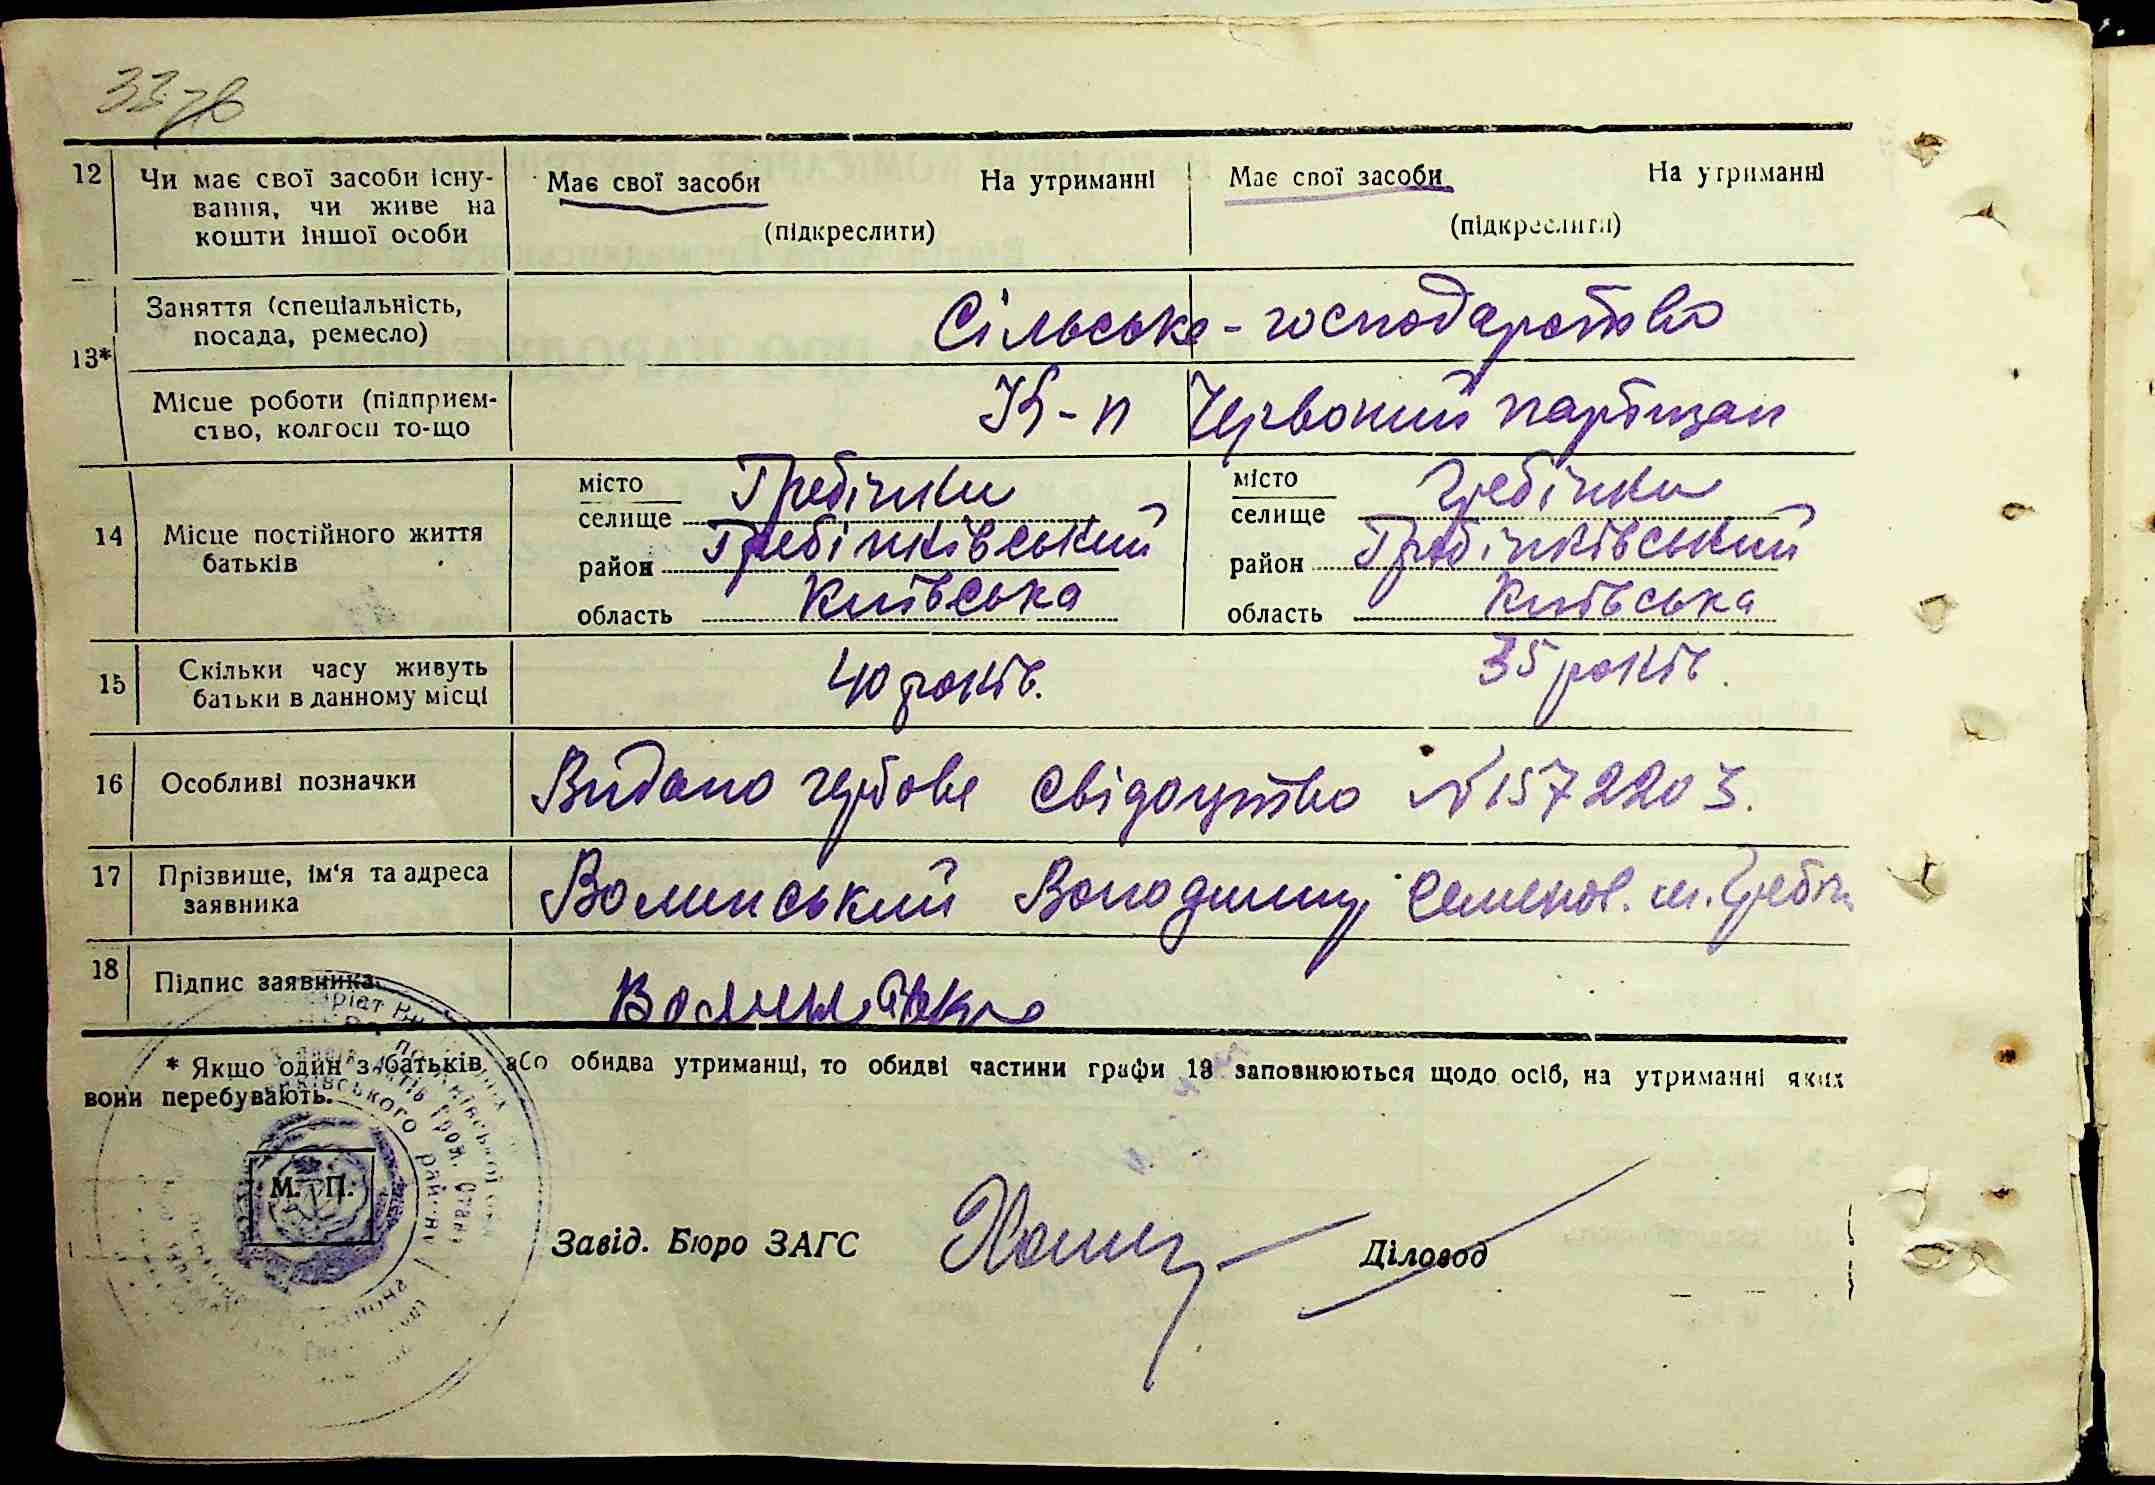 33
12 Чи має свої засоби існу-
вання, чи живе на
кошти іншої особи
Має свої засоби На утриманні
(підкреслити)
Має свої засоби На утриманні
(підкреслити)
13* Заняття (спеціальність,
посада, ремесло)
Сільське-господарство
Місце роботи (підприєм-
ство, колгосп то-що
К-п Червоний партизан
14 Місце постійного життя
батьків
місто
селище Гребінки
район Гребінківський
область Київська
місто
селище Гребінки
район Гребінківський
область Київська
15 Скільки часу живуть
батьки в данному місці
40 років. 35 років.
16 Особливі позначки
Видано гербове свідоцтво № 1572203.
17 Прізвище, ім'я та адреса
заявника
Волинський Володимир Семенов. м. Гребін
18 Підпис заявника
* Якщо один з батьків або обидва утриманці, то обидві частини графи 13 заповнюються щодо осіб, на утриманні яких
вони перебувають.
М. П.
Завід. Бюро ЗАГС Діловод